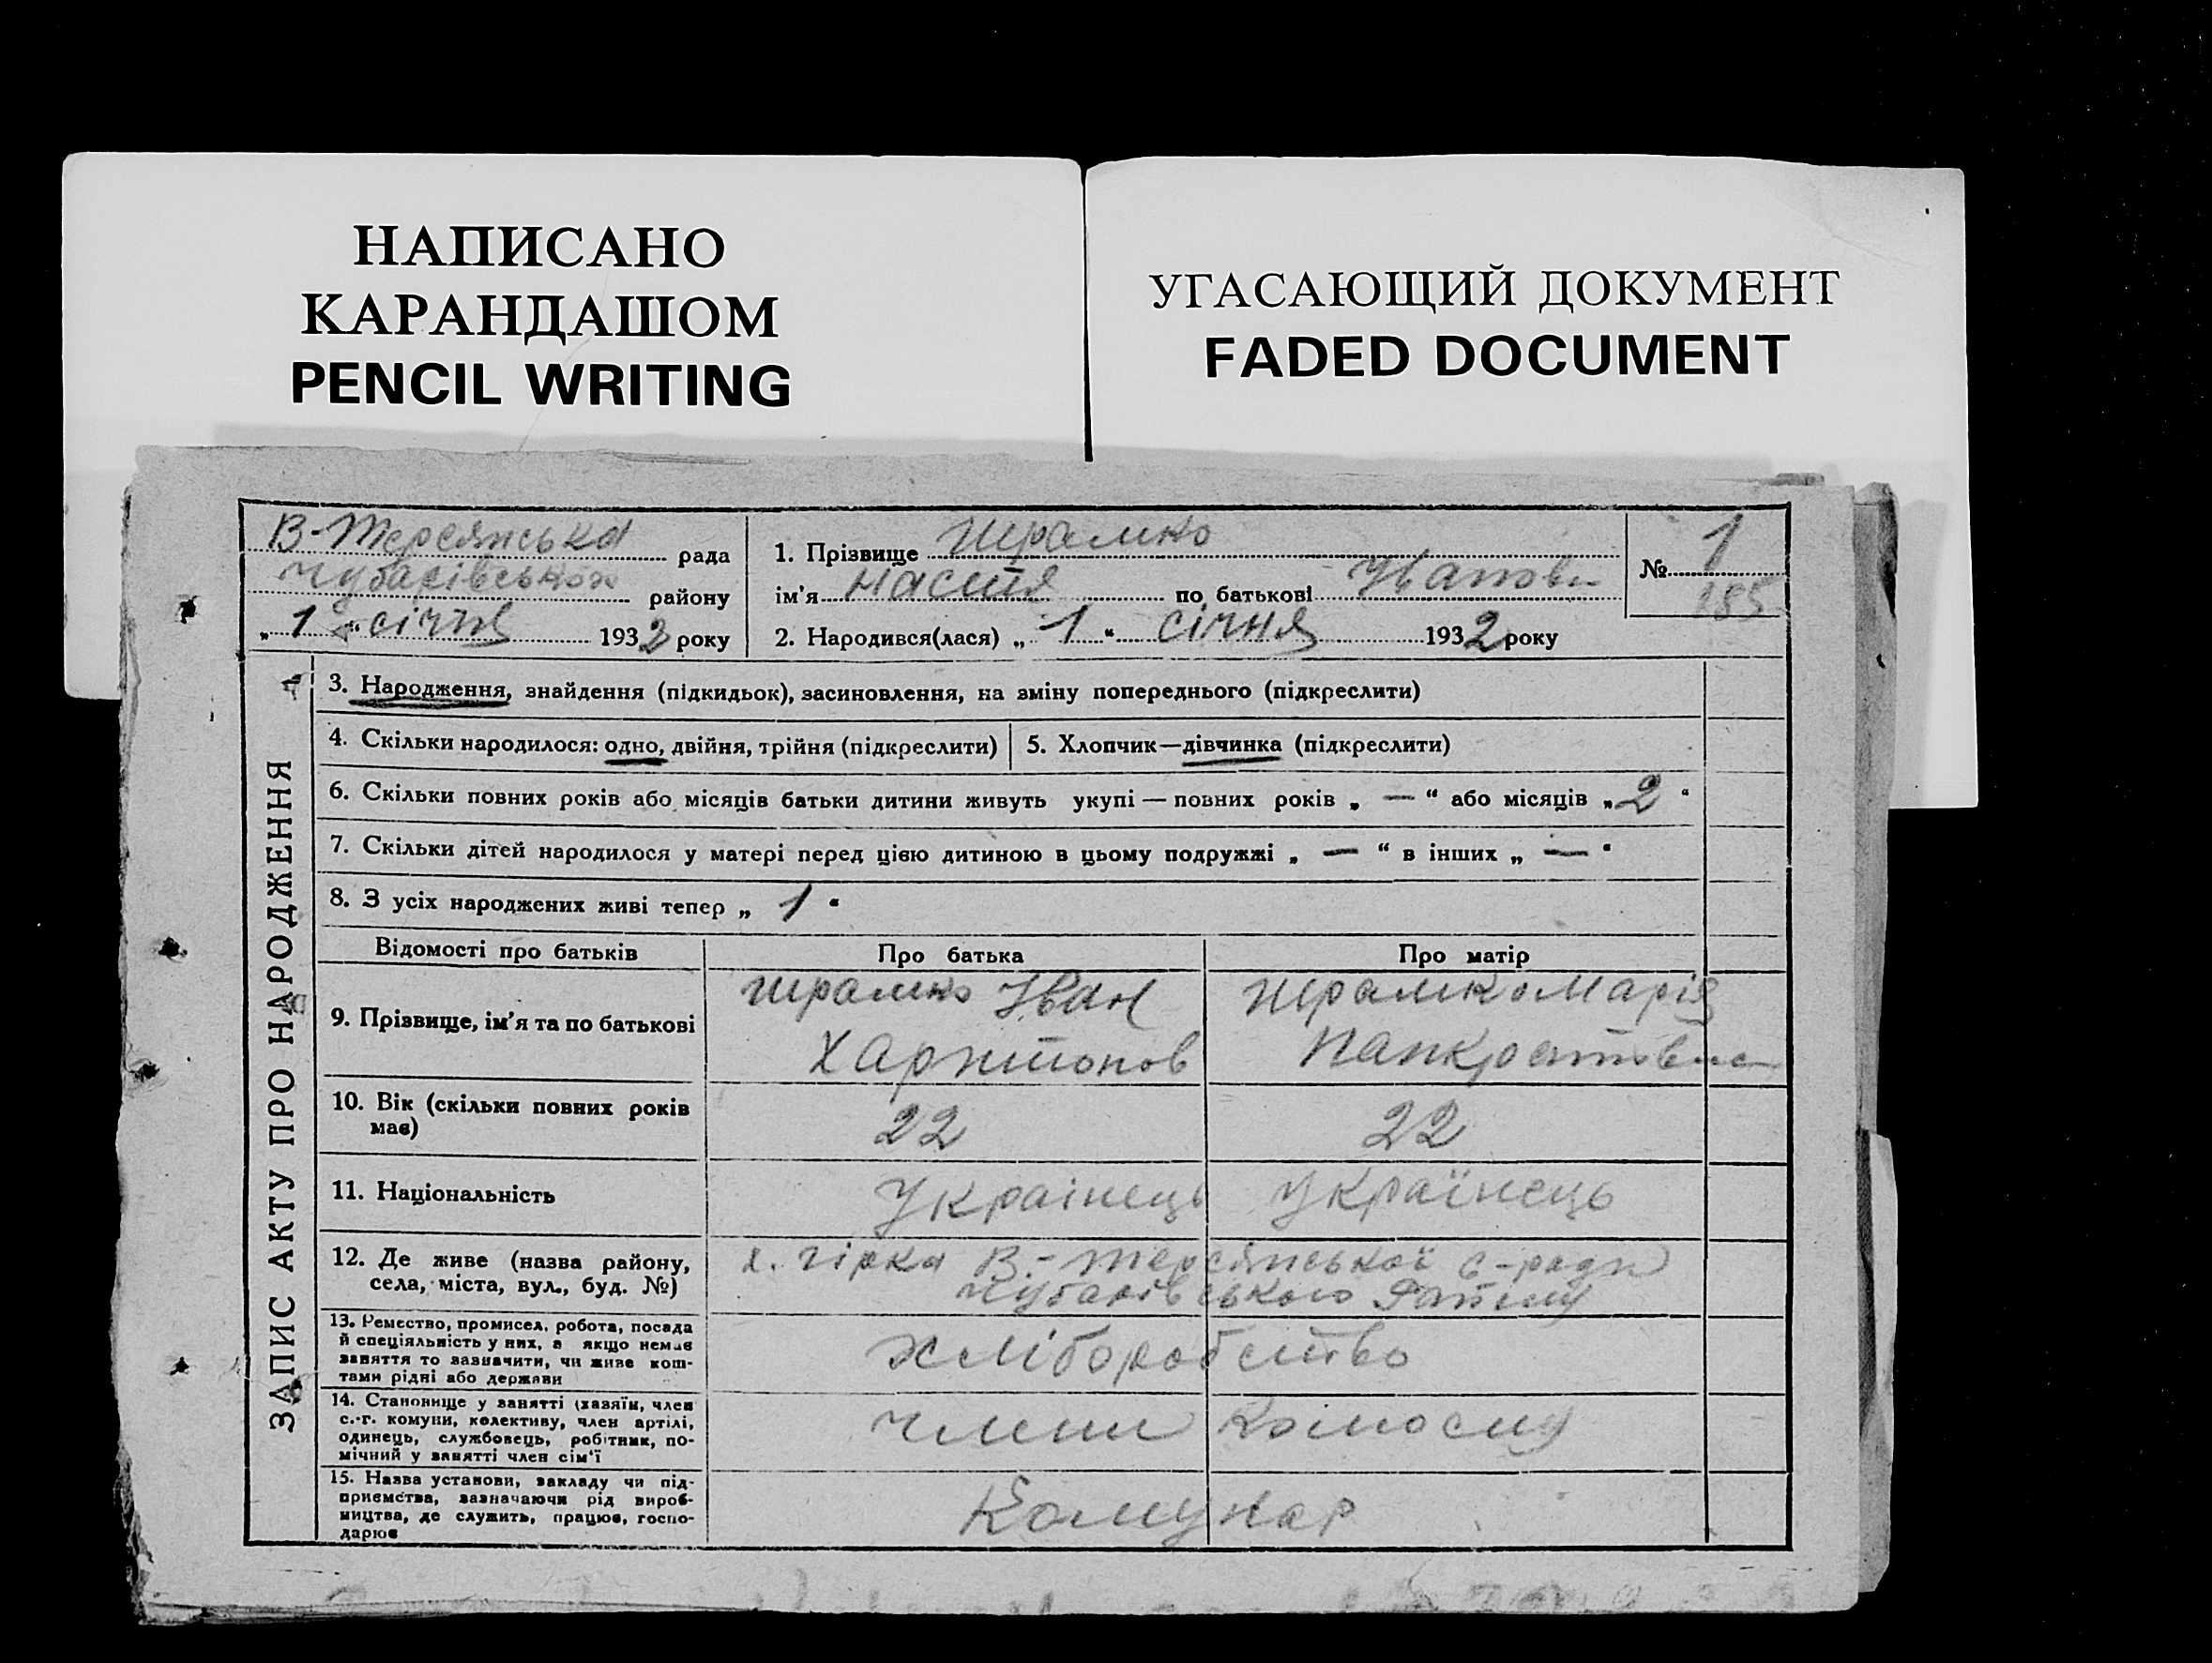 НАПИСАНО
КАРАНДАШОМ
PENCIL WRITING
УГАСАЮЩИЙ ДОКУМЕНТ
FADED DOCUMENT
В-Терсянська рада
району
„ 1 “ січня 1932 року
1. Прізвище Шрамко
ім'я Настя по батькові Іванови
2. Народився(лася) „ 1 “ січня 1932 року
№ 1
185
ЗАПИС АКТУ ПРО НАРОДЖЕННЯ
3. Народження, знайдення (підкидьок), засиновлення, на зміну попереднього (підкреслити)
4. Скільки народилося: одно, двійня, трійня (підкреслити)
5. Хлопчик—дівчинка (підкреслити)
6. Скільки повних років або місяців батьки дитини живуть укупі — повних років „ — “ або місяців „ 2 “
7. Скільки дітей народилося у матері перед цією дитиною в цьому подружжі „ — “ в інших „ — “
8. З усіх народжених живі тепер „ 1 “
Відомості про батьків
Про батька
Про матір
9. Прізвище, ім'я та по батькові
Шрамко Іван
Харитонов
Шрамко Марія
Панкратовна
10. Вік (скільки повних років
має)
22
22
11. Національність
Українець
Українець
12. Де живе (назва району,
села, міста, вул., буд. №)
х. Гірка В.-Терсянської с-ради
Чубарівського Району
13. Ремество, промисел, робота, посада
й спеціяльність у них, а якщо немає
заняття то зазначити, чи живе кош-
тами рідні або держави
хліборобство
14. Становище у занятті (хазяїн, член
с.-г. комуни, колективу, член артілі,
одинець, службовець, робітник, по-
мічний у занятті член сім'ї
члени
15. Назва установи, закладу чи під-
приємства, зазначаючи рід вироб-
ництва, де служить, працює, госпо-
дарює
Комунар